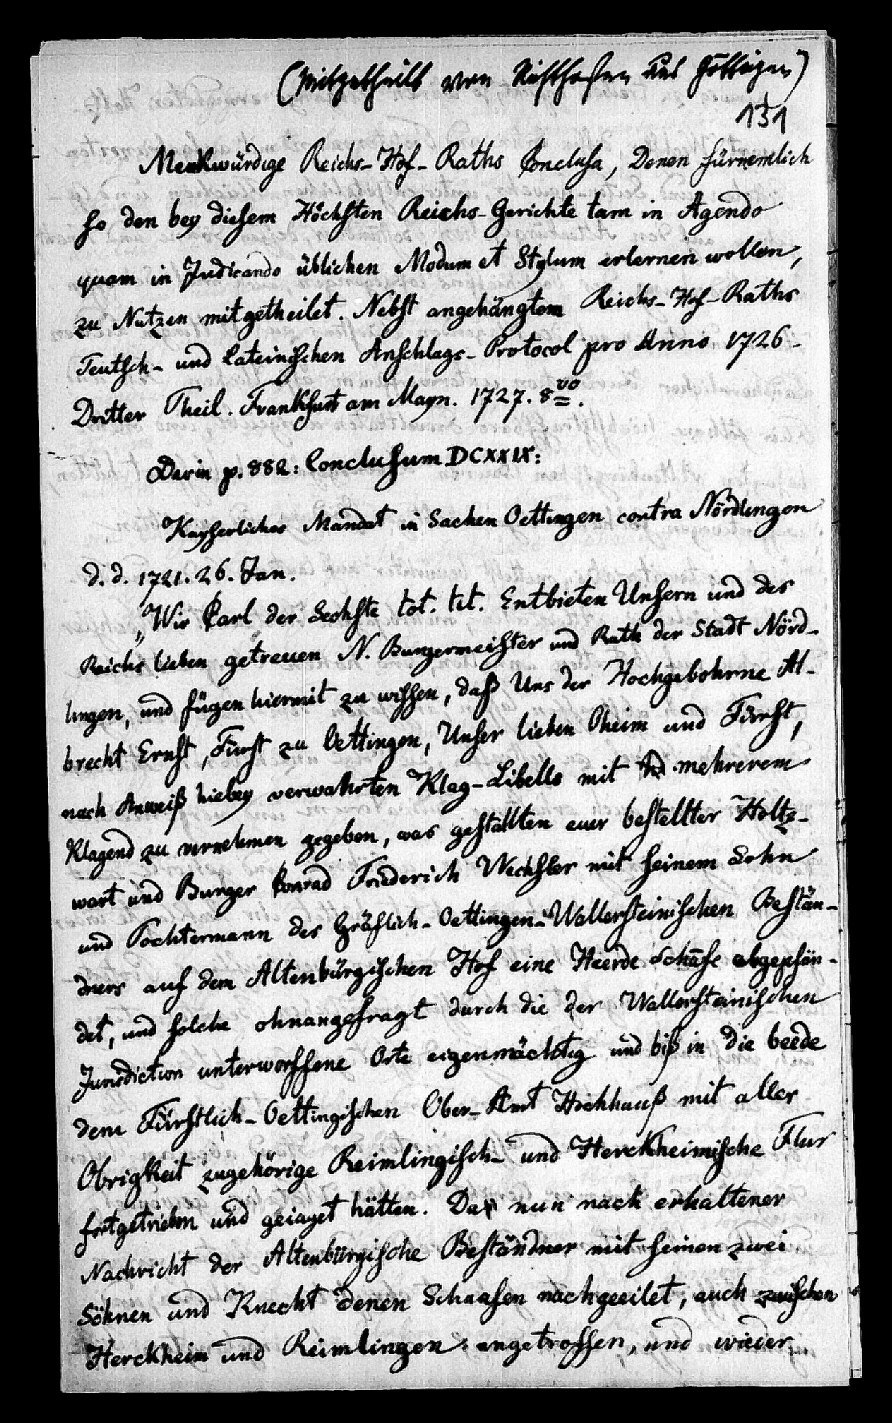 (Mitgetheilt von Richthofen aus Göttingen)
131
Merkwürdige Reichs-Hof-Raths Conclusa, Denen fürnemlich
so den bey diesem Höchsten Reichs-Gerichte tam in Agendo
quam in Judicando üblichen Modum et Stylum erlernen wollen,
zu Nutzen mitgetheilet. Nebst angehängtem Reichs-Hof-Raths
Teutsch- und Lateinischen Anschlags-Protocol pro Anno 1726-
Dritter Theil. Frankfurt am Mayn. 1727. 8vo.
Darin p. 882: Conclusum DCXXIX:
Kayserliches Mandat in Sachen Oettingen contra Nördlingen
d. d. 1721. 26. Jan.
„Wir Carl der Sechste tot. tit. Entbieten Unsern und des
Reichs lieben getreuen N. Burgermeister und Rath der Stadt Nörd-
lingen, und fügen hiermit zu wissen, daß Uns der Hochgebohrne Al-
brecht Ernst, Fürst zu Oettingen, Unser lieben Oheim und Fürst,
nach Anweiß hiebey verwahrten Klag-Libells mit mehrerem
Klagend zu vernehmen gegeben, was gestallten euer bestellter Holtz-
wart und Burger Conrad Friderich Wechsler mit seinem Sohn
und Tochtermann des Gräflich-Oettingen-Wallersteinischen Bestän-
dners auf dem Altenbürgischen Hof eine Heerde Schafe abgepfän-
det, und solche ohnangefragt durch die der Wallersteinischen
Jurisdiction unterworffene Orte eigenmächtig und biß in die beede
dem Fürstlich-Oettingischen Ober-Amt Hochhauß mit aller
Obrigkeit zugehörige Reimlingisch- und Herckheimische Flur
fortgetrieben und geiaget hätten. Das nun nach erhaltener
Nachricht der Altenbürgische Beständner mit seinen zwei
Söhnen und Knecht denen Schaafen nachgeeilet, auch zwischen
Herckheim und Reimlingen angetroffen, und wieder